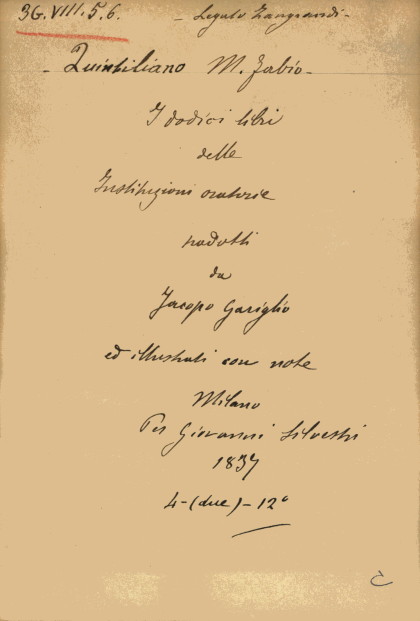 3G.VIII.5.6. - Legato Zangrandi -
- Quintiliano M. Fabio -
I dodici libri
delle
Instituzioni oratorie
tradotti
da
Jacopo Gariglio
ed illustrati con note
Milano
Per Giovanni Silvestri
1837
4-(due)-12º
C